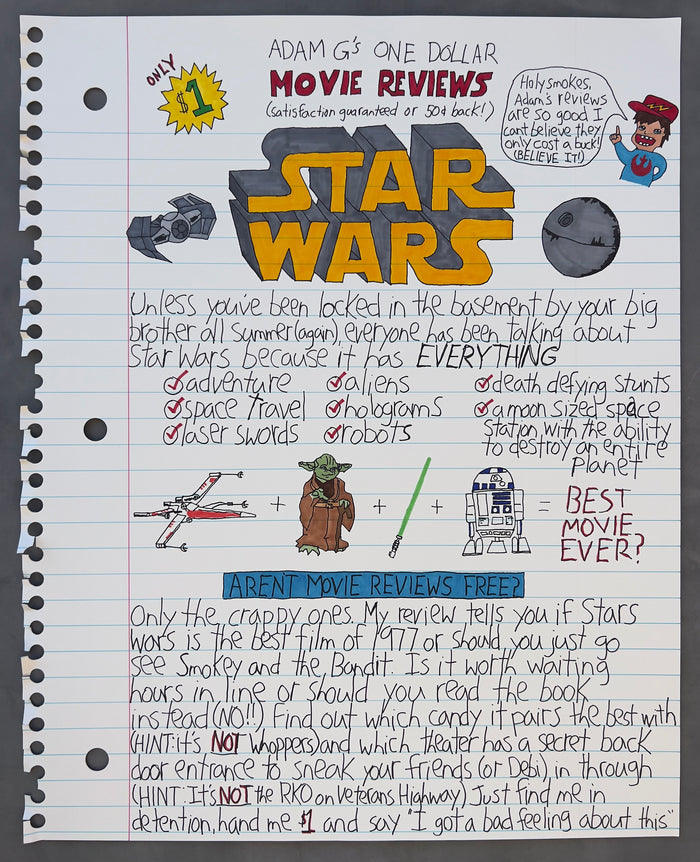 ADAM G's ONE DOLLAR
ONLY
$1
MOVIE REVIEWS
(satisfaction guaranteed or 50¢ back!)
Holy smokes,
Adam's reviews
are so good I
cant believe they
only cost a buck!
(BELIEVE IT!)
STAR
WARS
Unless you've been locked in the basement by your big
brother all summer (again), everyone has been talking about
Star Wars because it has EVERYTHING
adventure
aliens
death defying stunts
space travel
holograms
a moon sized space
station with the ability
to destroy an entire
planet
laser swords
robots
+ + + = BEST
MOVIE
EVER?
ARENT MOVIE REVIEWS FREE?
Only the crappy ones. My review tells you if Stars
wars is the best film of 1977 or should you just go
see Smokey and the Bandit. Is it worth waiting
hours in line or should you read the book
instead (NO!!) Find out which candy it pairs the best with
(HINT: it's NOT Whoppers) and which theater has a secret back
door entrance to sneak your friends (or Debi), in through
(HINT: It's NOT the RKO on Veterans Highway) Just find me in
detention, hand me $1 and say "I got a bad feeling about this"